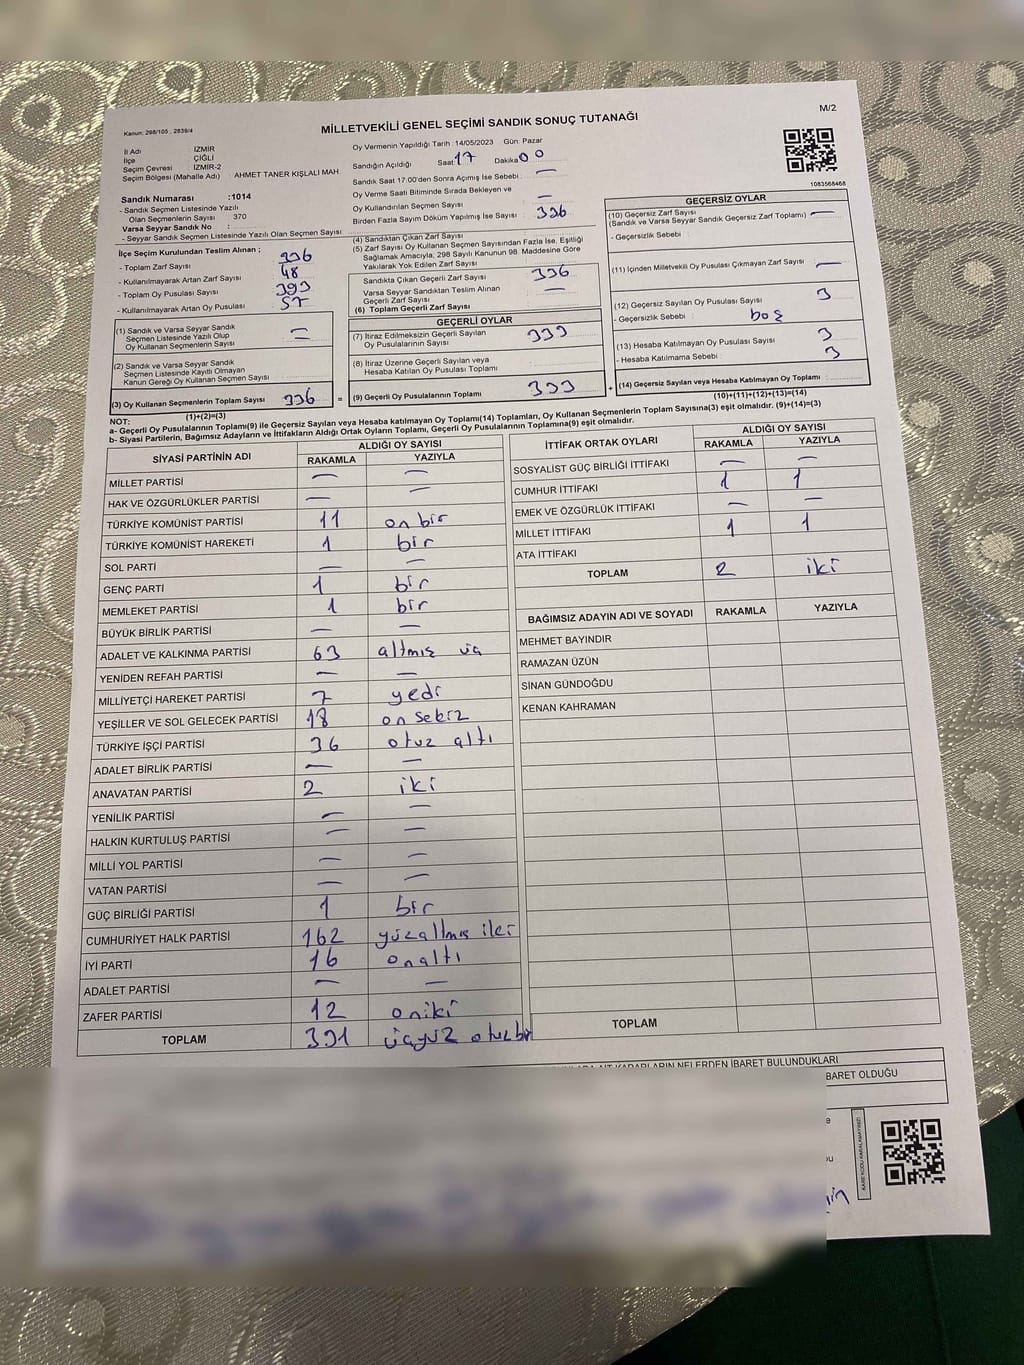 Kanun: 298/105 , 2839/4
MİLLETVEKİLİ GENEL SEÇİMİ SANDIK SONUÇ TUTANAĞI
M/2
İl Adı : İZMİR
İlçe : ÇİĞLİ
Seçim Çevresi : İZMİR-2
Seçim Bölgesi (Mahalle Adı) : AHMET TANER KIŞLALI MAH
Sandık Numarası :1014
- Sandık Seçmen Listesinde Yazılı
Olan Seçmenlerin Sayısı : 370
Varsa Seyyar Sandık No :
- Seyyar Seçmen Listesinde Yazılı Olan Seçmen Sayısı :
Oy Vermenin Yapıldığı Tarih :14/05/2023 Gün: Pazar
Sandığın Açıldığı Saat 17 Dakika 00
Sandık Saat 17:00'den Sonra Açılmış İse Sebebi : —
Oy Verme Saati Bitiminde Sırada Bekleyen ve
Oy Kullandırılan Seçmen Sayısı : —
Birden Fazla Sayım Döküm Yapılmış İse Sayısı : 336
1083568468
İlçe Seçim Kurulundan Teslim Alınan ;
- Toplam Zarf Sayısı : 396
- Kullanılmayarak Artan Zarf Sayısı : 48
- Toplam Oy Pusulası Sayısı : 393
- Kullanılmayarak Artan Oy Pusulası : 57
(1) Sandık ve Varsa Seyyar Sandık
Seçmen Listesinde Yazılı Olup
Oy Kullanan Seçmenlerin Sayısı :
(2) Sandık ve Varsa Seyyar Sandık
Seçmen Listesinde Kayıtlı Olmayan
Kanun Gereği Oy Kullanan Seçmen Sayısı :
(3) Oy Kullanan Seçmenlerin Toplam Sayısı 336
(1)+(2)=(3)
(4) Sandıktan Çıkan Zarf Sayısı
(5) Zarf Sayısı Oy Kullanan Seçmen Sayısından Fazla İse, Eşitliği
Sağlamak Amacıyla, 298 Sayılı Kanunun 98. Maddesine Göre
Yakılarak Yok Edilen Zarf Sayısı
Sandıkta Çıkan Geçerli Zarf Sayısı 336
Varsa Seyyar Sandıktan Teslim Alınan
Geçerli Zarf Sayısı —
(6) Toplam Geçerli Zarf Sayısı
GEÇERLİ OYLAR
(7) İtiraz Edilmeksizin Geçerli Sayılan
Oy Pusulalarının Sayısı : 333
(8) İtiraz Üzerine Geçerli Sayılan veya
Hesaba Katılan Oy Pusulası Toplamı
= (9) Geçerli Oy Pusulalarının Toplamı 333 +
GEÇERSİZ OYLAR
(10) Geçersiz Zarf Sayısı
(Sandık ve Varsa Seyyar Sandık Geçersiz Zarf Toplamı) —
- Geçersizlik Sebebi :
(11) İçinden Milletvekili Oy Pusulası Çıkmayan Zarf Sayısı —
(12) Geçersiz Sayılan Oy Pusulası Sayısı 3
- Geçersizlik Sebebi : boş
(13) Hesaba Katılmayan Oy Pusulası Sayısı 3
- Hesaba Katılmama Sebebi : 3
(14) Geçersiz Sayılan veya Hesaba Katılmayan Oy Toplamı
(10)+(11)+(12)+(13)=(14)
NOT:
a- Geçerli Oy Pusulalarının Toplamı(9) ile Geçersiz Sayılan veya Hesaba Katılmayan Oy Toplamı(14) Toplamları, Oy Kullanan Seçmenlerin Toplam Sayısına(3) eşit olmalıdır. (9)+(14)=(3)
b- Siyasi Partilerin, Bağımsız Adayların ve İttifakların Aldığı Ortak Oyların Toplamı, Geçerli Oy Pusulalarının Toplamına(9) eşit olmalıdır.
SİYASİ PARTİNİN ADI ALDIĞI OY SAYISI
RAKAMLA YAZIYLA
MİLLET PARTİSİ — —
HAK VE ÖZGÜRLÜKLER PARTİSİ — —
TÜRKİYE KOMÜNİST PARTİSİ 11 on bir
TÜRKİYE KOMÜNİST HAREKETİ 1 bir
SOL PARTİ — —
GENÇ PARTİ 1 bir
MEMLEKET PARTİSİ 1 bir
BÜYÜK BİRLİK PARTİSİ — —
ADALET VE KALKINMA PARTİSİ 63 altmış üç
YENİDEN REFAH PARTİSİ — —
MİLLİYETÇİ HAREKET PARTİSİ 7 yedi
YEŞİLLER VE SOL GELECEK PARTİSİ 18 on sekiz
TÜRKİYE İŞÇİ PARTİSİ 36 otuz altı
ADALET BİRLİK PARTİSİ — —
ANAVATAN PARTİSİ 2 iki
YENİLİK PARTİSİ — —
HALKIN KURTULUŞ PARTİSİ — —
MİLLİ YOL PARTİSİ — —
VATAN PARTİSİ — —
GÜÇ BİRLİĞİ PARTİSİ 1 bir
CUMHURİYET HALK PARTİSİ 162 yüzaltmış iki
İYİ PARTİ 16 onaltı
ADALET PARTİSİ — —
ZAFER PARTİSİ 12 oniki
TOPLAM 331 üçyüz otuzbir
İTTİFAK ORTAK OYLARI ALDIĞI OY SAYISI
RAKAMLA YAZIYLA
SOSYALİST GÜÇ BİRLİĞİ İTTİFAKI — —
CUMHUR İTTİFAKI 1 1
EMEK VE ÖZGÜRLÜK İTTİFAKI — —
MİLLET İTTİFAKI 1 1
ATA İTTİFAKI
TOPLAM 2 iki
BAĞIMSIZ ADAYIN ADI VE SOYADI RAKAMLA YAZIYLA
MEHMET BAYINDIR
RAMAZAN ÜZÜN
SİNAN GÜNDOĞDU
KENAN KAHRAMAN
TOPLAM
KARARLARIN NELERDEN İBARET BULUNDUKLARI
BARET OLDUĞU